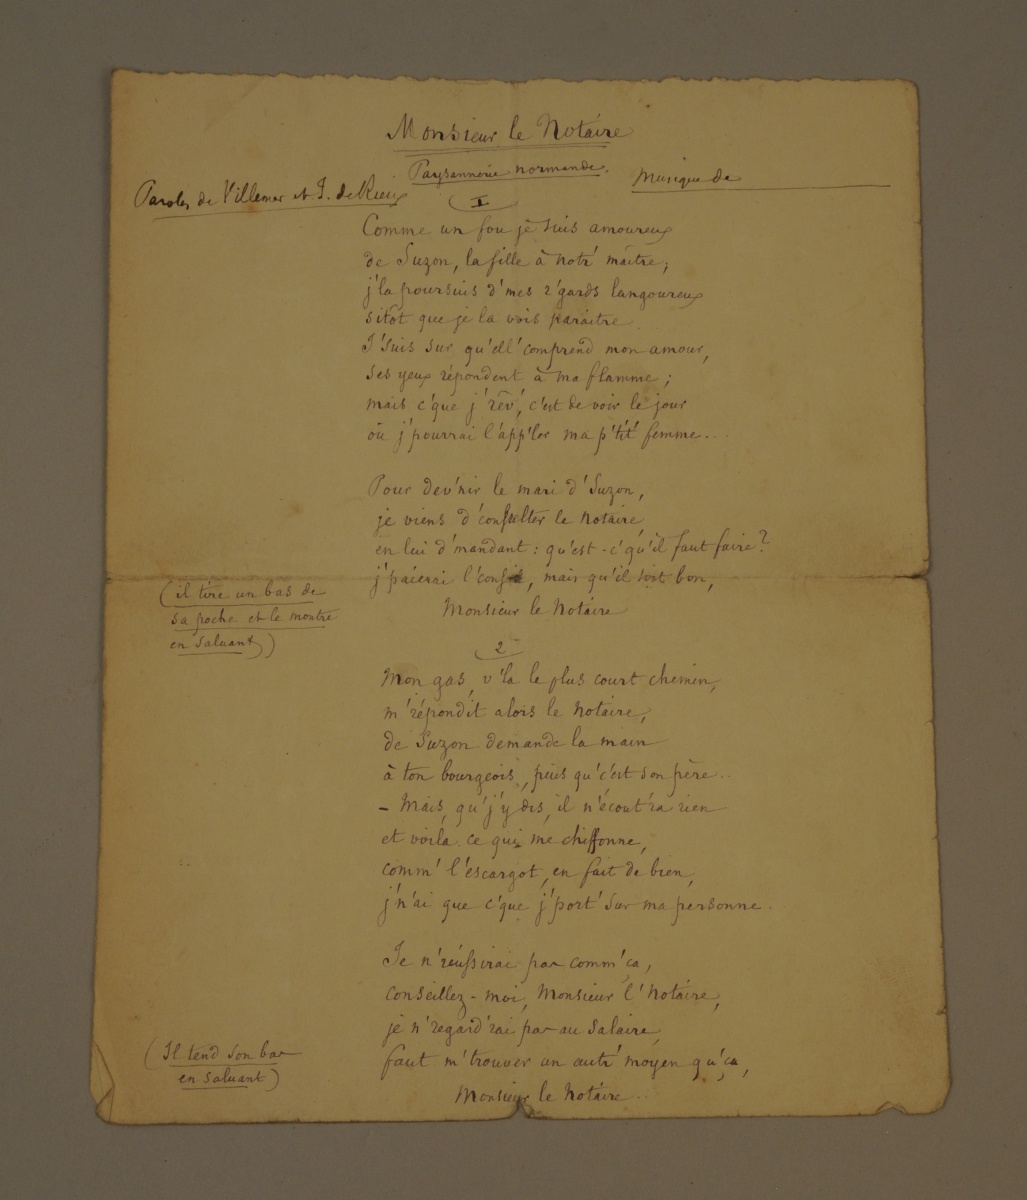 Monsieur le Notaire
Paysannerie normande.
Paroles de Villemer et J. de Rieux
Musique de
I
Comme un fou je suis amoureux
de Suzon, la fille à notr' maître;
j'la poursuis d'mes r'gards langoureux
sitôt que je la vois paraitre.
J'suis sur qu'ell' comprend mon amour,
ses yeux répondent à ma flamme;
mais c'que j'rêv', c'est de voir le jour
où j'pourrai l'app'ler ma p'tit' femme...
Pour dev'nir le mari d'Suzon,
je viens d'consulter le Notaire
en lui d'mandant: qu'est-c'qu'il faut faire?
j'paierai l'conseil, mais qu'il soit bon,
Monsieur le Notaire
(il tire un bas de
sa poche et le montre
en saluant)
2
Mon gas, v'la le plus court chemin,
m'répondit alors le Notaire,
de Suzon demande la main
à ton bourgeois, puis qu'c'est son père..
- Mais, qu'j'y dis, il n'écout'ra rien
et voilà ce qui me chiffonne,
comm' l'escargot, en fait de bien,
j'n'ai que c'que j'port' sur ma personne.
Je n'réussirai pas comm'ça,
conseillez-moi, Monsieur l'Notaire,
je n'regard'rai pas au salaire,
faut m'trouver un autr' moyen qu'ça,
Monsieur le Notaire..
(Il tend son bas
en saluant)